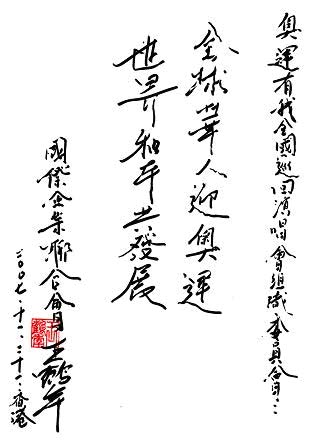 奧運有我全國巡回演唱會組織委員會：
全球華人迎奧運
世界和平與發展
國際企業聯合會
二〇〇七·十一·二十一·香港